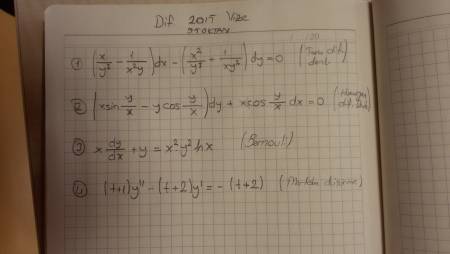 Dif 2015 Vize
① (x/y² - 1/x²y)dx - (x²/y³ + 1/xy²)dy = 0 (Tam dif. denk)
② (x sin y/x - y cos y/x)dy + x cos y/x dx = 0 (Homojen dif. denk)
③ x dy/dx + y = x²y² ln x (Bernoulli)
④ (t+1)y'' - (t+2)y' = -(t+2)